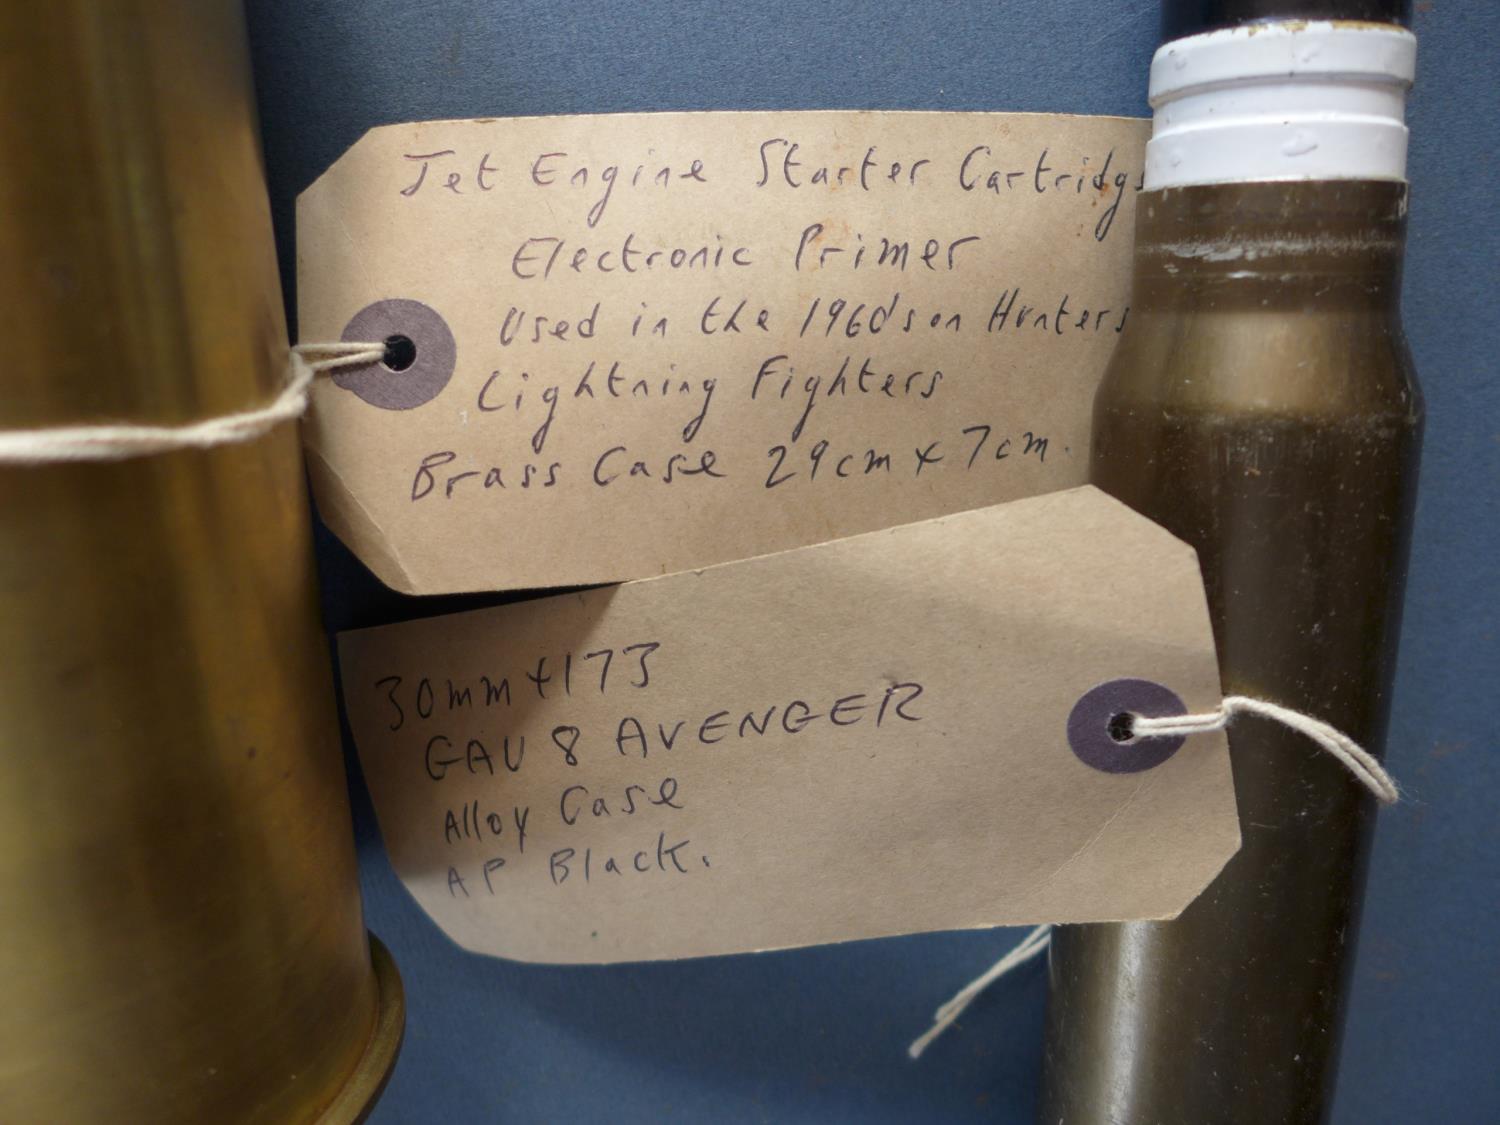 Jet Engine Starter Cartridg
Electronic Primer
Used in the 1960's on Hunters
Lightning Fighters
Brass Case 29cm x 7cm.
30mm x 173
GAU 8 AVENGER
Alloy Case
AP Black.